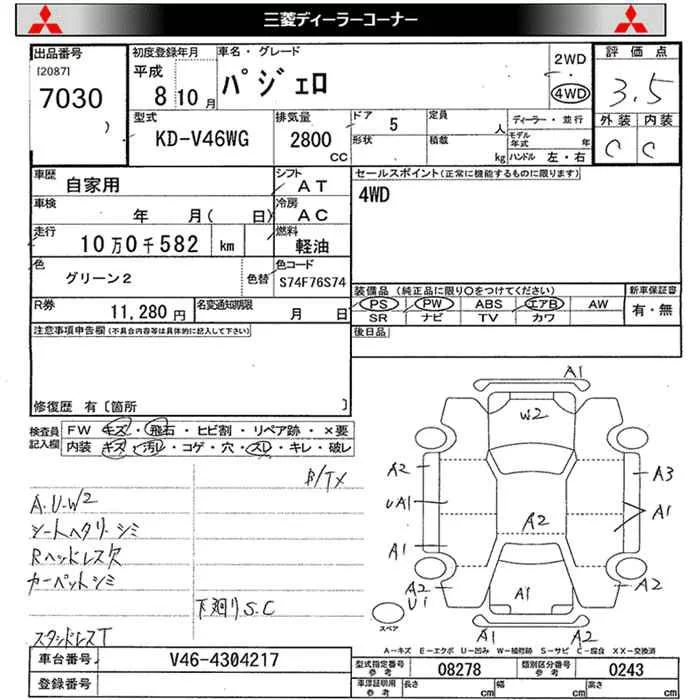 三菱ディーラーコーナー
出品番号 初度登録年月 車名・グレード 2WD 評価点
[2087] 平成 パジェロ 4WD 3.5
7030 8 10 月
) 型式 排気量 ドア 5 定員 人 ディーラー・並行 外装 内装
KD-V46WG 2800 CC 形状 積載 kg モデル年式 年 C C
ハンドル 左・右
車歴 自家用 シフト AT セールスポイント(正常に機能するものに限ります)
車検 年 月( 日) 冷房 AC 4WD
走行 10万0千582 km 燃料 軽油
色 グリーン2 色替 色コード S74F76S74
装備品(純正品に限り○をつけてください) 新車保証書
R券 11,280円 名変通知期限 月 日 PS PW ABS エアB AW 有・無
SR ナビ TV カワ
注意事項申告欄(不具合内容等は具体的に記入して下さい) 後日品
修復歴 有〔箇所 〕
検査員記入欄 FW キズ・飛石・ヒビ割・リペア跡・×要
内装 キズ・汚レ・コゲ・穴・スレ・キレ・破レ
A.U-W2
シートヘタリ・シミ
Rヘッドレス欠
カーペットシミ
下廻りS.C
スタッドレスT
A1
W2
A2 A3
UA1 A1
A2
A1
A2 A1 A2
U1
スペア
A1 A2
A-キズ E-エクボ U-凹み W-補修跡 S-サビ C-腐食 XX-交換済
車台番号 V46-4304217 型式指定番号 参考 08278 類別区分番号 参考 0243
登録番号 車庫証明用 参考 長さ cm 幅 cm 高さ cm